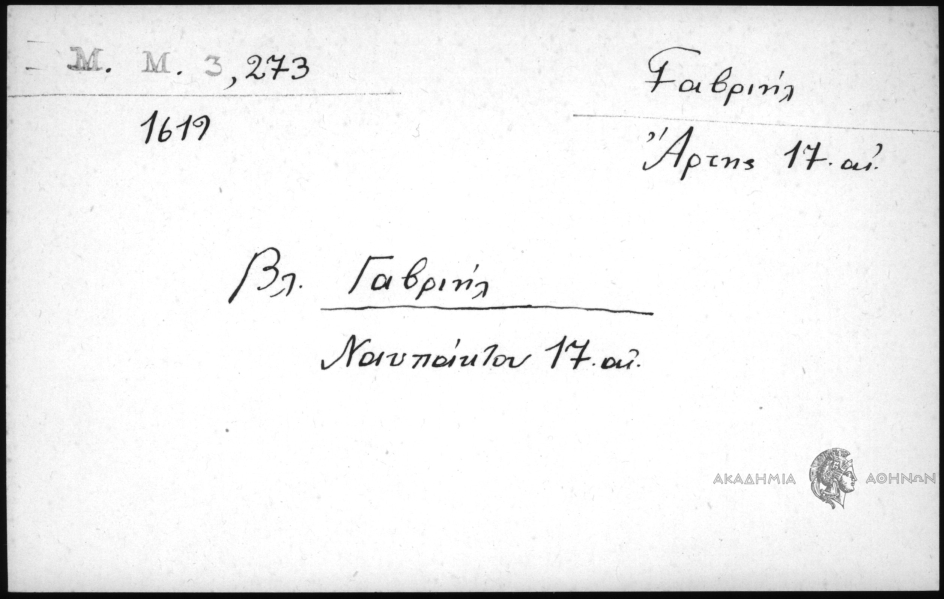 M. M. 3,273
1619
Γαβριήλ
Ἄρτης 17. αἰ.
Βλ. Γαβριήλ
Ναυπάκτου 17. αἰ.
ΑΚΑΔΗΜΙΑ ΑΘΗΝΩΝ